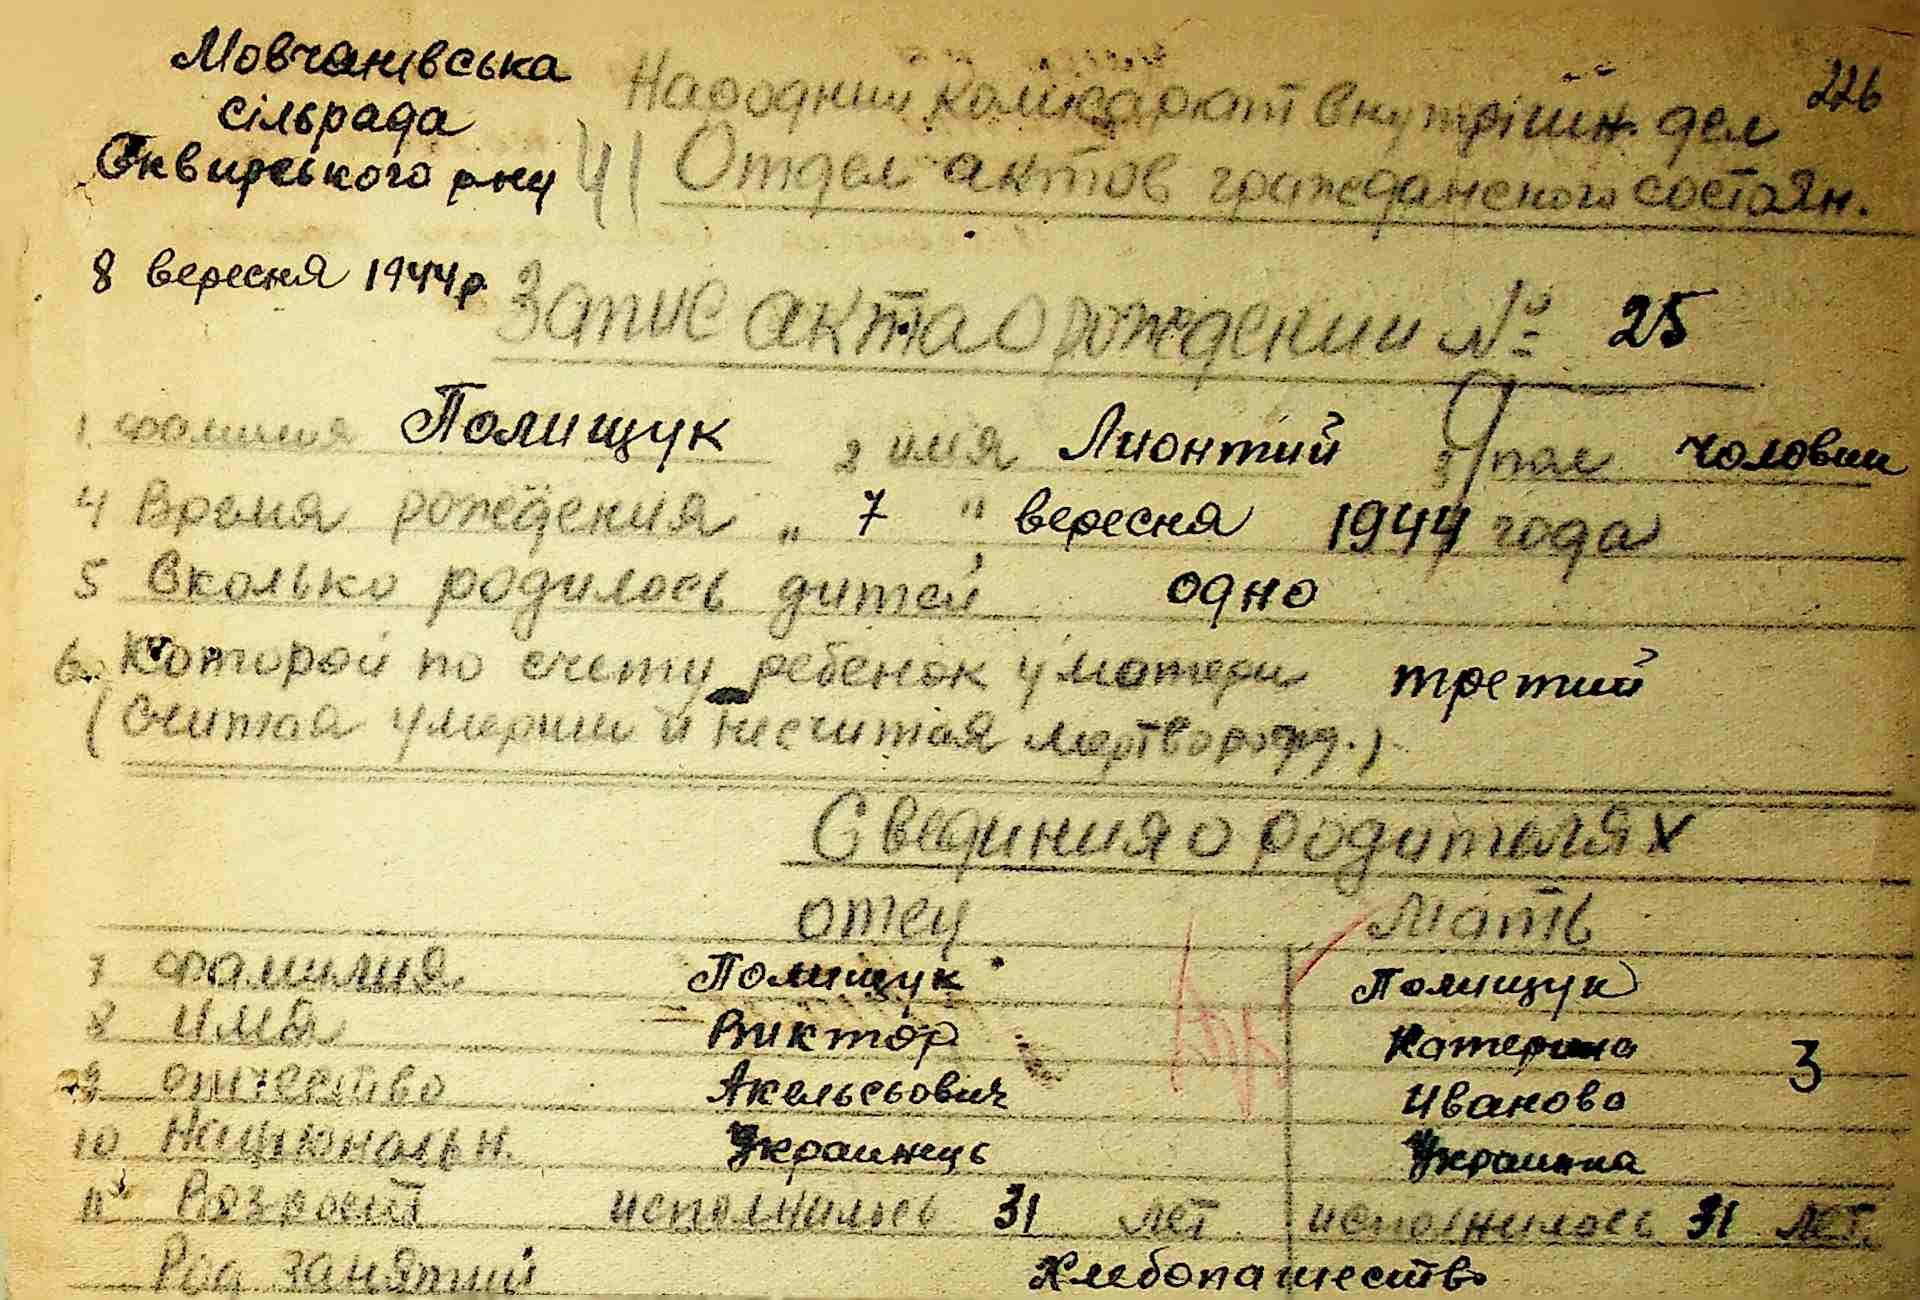 Мовчанівська
сільрада
Сквирського р-ну
226
Народний Комісаріат Внутрішн. дел
Отдел актов гражданского состоян.
8 вересня 1944 р.
Запис акта о рождении № 25
1. фамилия Полищук 2 имя Лионтий 3 пол чоловіч
4 Время рождения „ 7 " вересня 1944 года
5 Сколько родилось дитей одно
6. Которой по счету ребенок у матери третий
(Считая умерши и несчитая мертворожд.)
Свединия о родителях
отец мать
7 Фамилия Полищук Полищук
8 Имя Виктор Катерина 3
9 отчество Акельсьович Иванова
10 Национальн. Украинець Украинка
11 Возраст исполнилось 31 лет исполнилось 31 лет.
Род занятий Хлебопашество